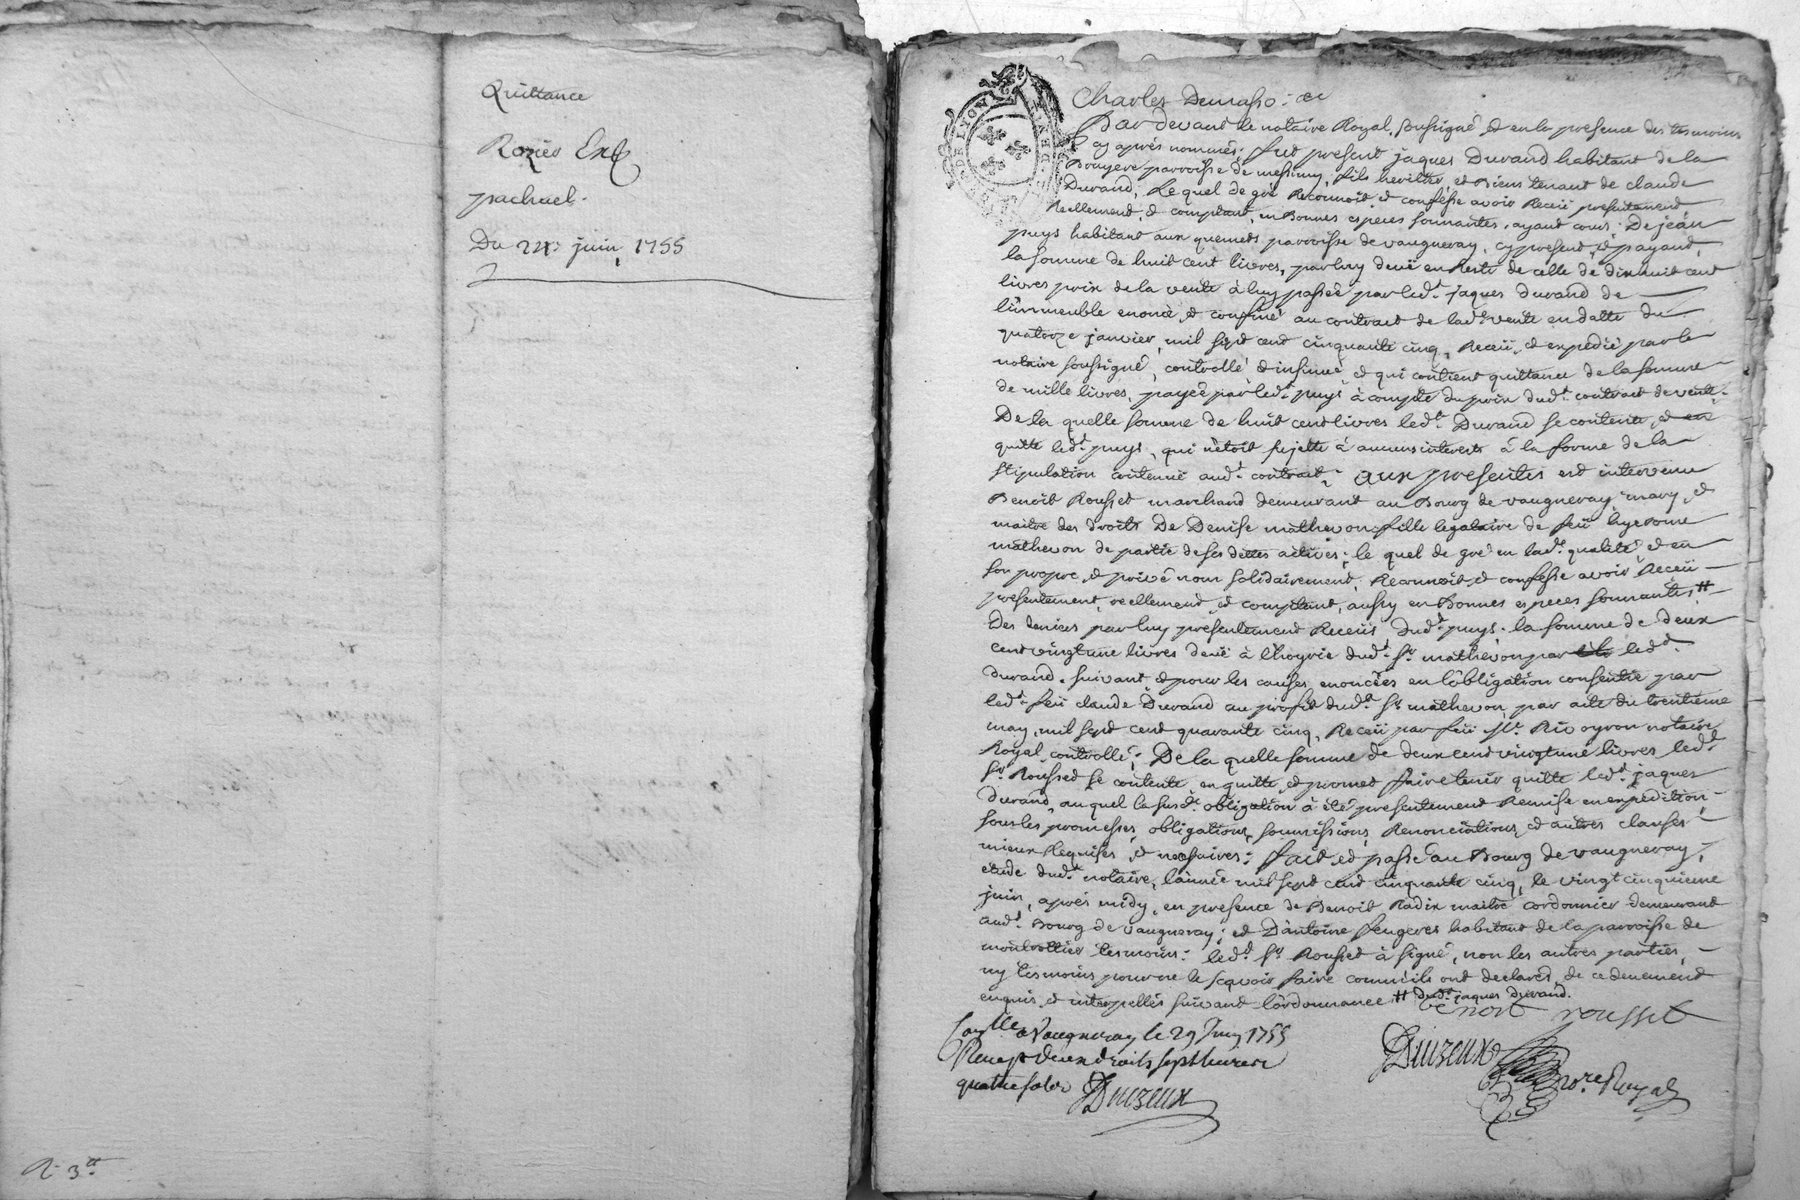 Quittance
Rozier
pachuel.
Du juin 1755
R. 3tt
DE LYON
Charles Demasso: &c
Par devant le notaire Royal, soussigné, et en la presence des tesmoins
cy aprés nommés; fut present jaques Durand habitant de la
Bruyere parroisse de messimy, fils heritier, et Biens tenant de claude
Durand, Lequel de gré Reconnoit, et confesse avoir Receü presentement
Reellement, et comptant, en Bonnes especes sonnantes, ayant cours; De jean
puys habitant aux quemets parroisse de vaugneray, cy present, et payant,
la somme de huit cent livres, par luy deüe en Reste de celle de dixhuit cent
livres prix de la vente à luy passée par led.t jaques durand de
l'immeuble enoncé, et confiné au contract de lad.e vente en datte du
quatorze janvier, mil sept cent cinquante cinq, Receü, et expedié par le
notaire soussigné, controllé et insinué, et qui contient quittance de la somme
de mille livres, payée par led.t puys à compte du prix dud.t contract de vente.
De la quelle somme de huit cent livres led.t Durand se contente, et en
quitte led.t puys, qui n'étoit sujette à aucuns interets à la forme de la
stipulation contenüe aud.t contract; aux presentes est intervenu
Benoit Rousset marchand demeurant au Bourg de vaugneray mary, et
maitre des droits De Denise mathevon fille legataire de feü hyerome
mathevon de partie de ses dettes actives; le quel de gré en lad.e qualité, et en
son propre, et privé nom solidairement, Reconnoit, et confesse avoir Receü
presentement, reellement, et comptant, aussy en Bonnes especes sonnantes, #
Des deniers par luy presentement Receüs dud.t puys, la somme de deux
cent vingt une livres deüe à l'hoyrie dud.t S.r mathevon par led.t
durand, suivant et pour les causes enoncées en l'obligation consentie par
led.t feü claude Durand au profit dud.t S.r mathevon, par acte du trentieme
may, mil sept cent quarante cinq, Receü par feü M.e notaire
Royal, controllé; De la quelle somme de deux cent vingt une livres led.t
S.r Rousset se contente, en quitte, et promet faire tenir quitte led.t jaques
durand, au quel la susd.e obligation à été presentement Remise en expedition,
sous les promesses, obligations, soumissions, Renonciations, et autres clauses
mieux Requises, et necessaires; fait, et passé au Bourg de vaugneray,
etude dud.t notaire, l'année mil sept cent cinquante cinq, le vingt cinquieme
juin, aprés midy, en presence de Benoit Radix maitre cordonnier demeurant
aud.t Bourg de vaugneray; et D'antoine feugeres habitant de la parroisse de
montrottier tesmoins; led.t S.r Rousset à signé, non les autres parties,
ny tesmoins pour ne le sçavoir faire comm'ils ont declaré, de ce deuement
enquis, et interpellés suivant l'ordonnance, # dud.t jaques durand.
Benoit rousset
Con.lle à Vaugneray le 29 Juin 1755
Receu pr deux droits sept livres
quatre sols Duizeux
Duizeux no.re Royal